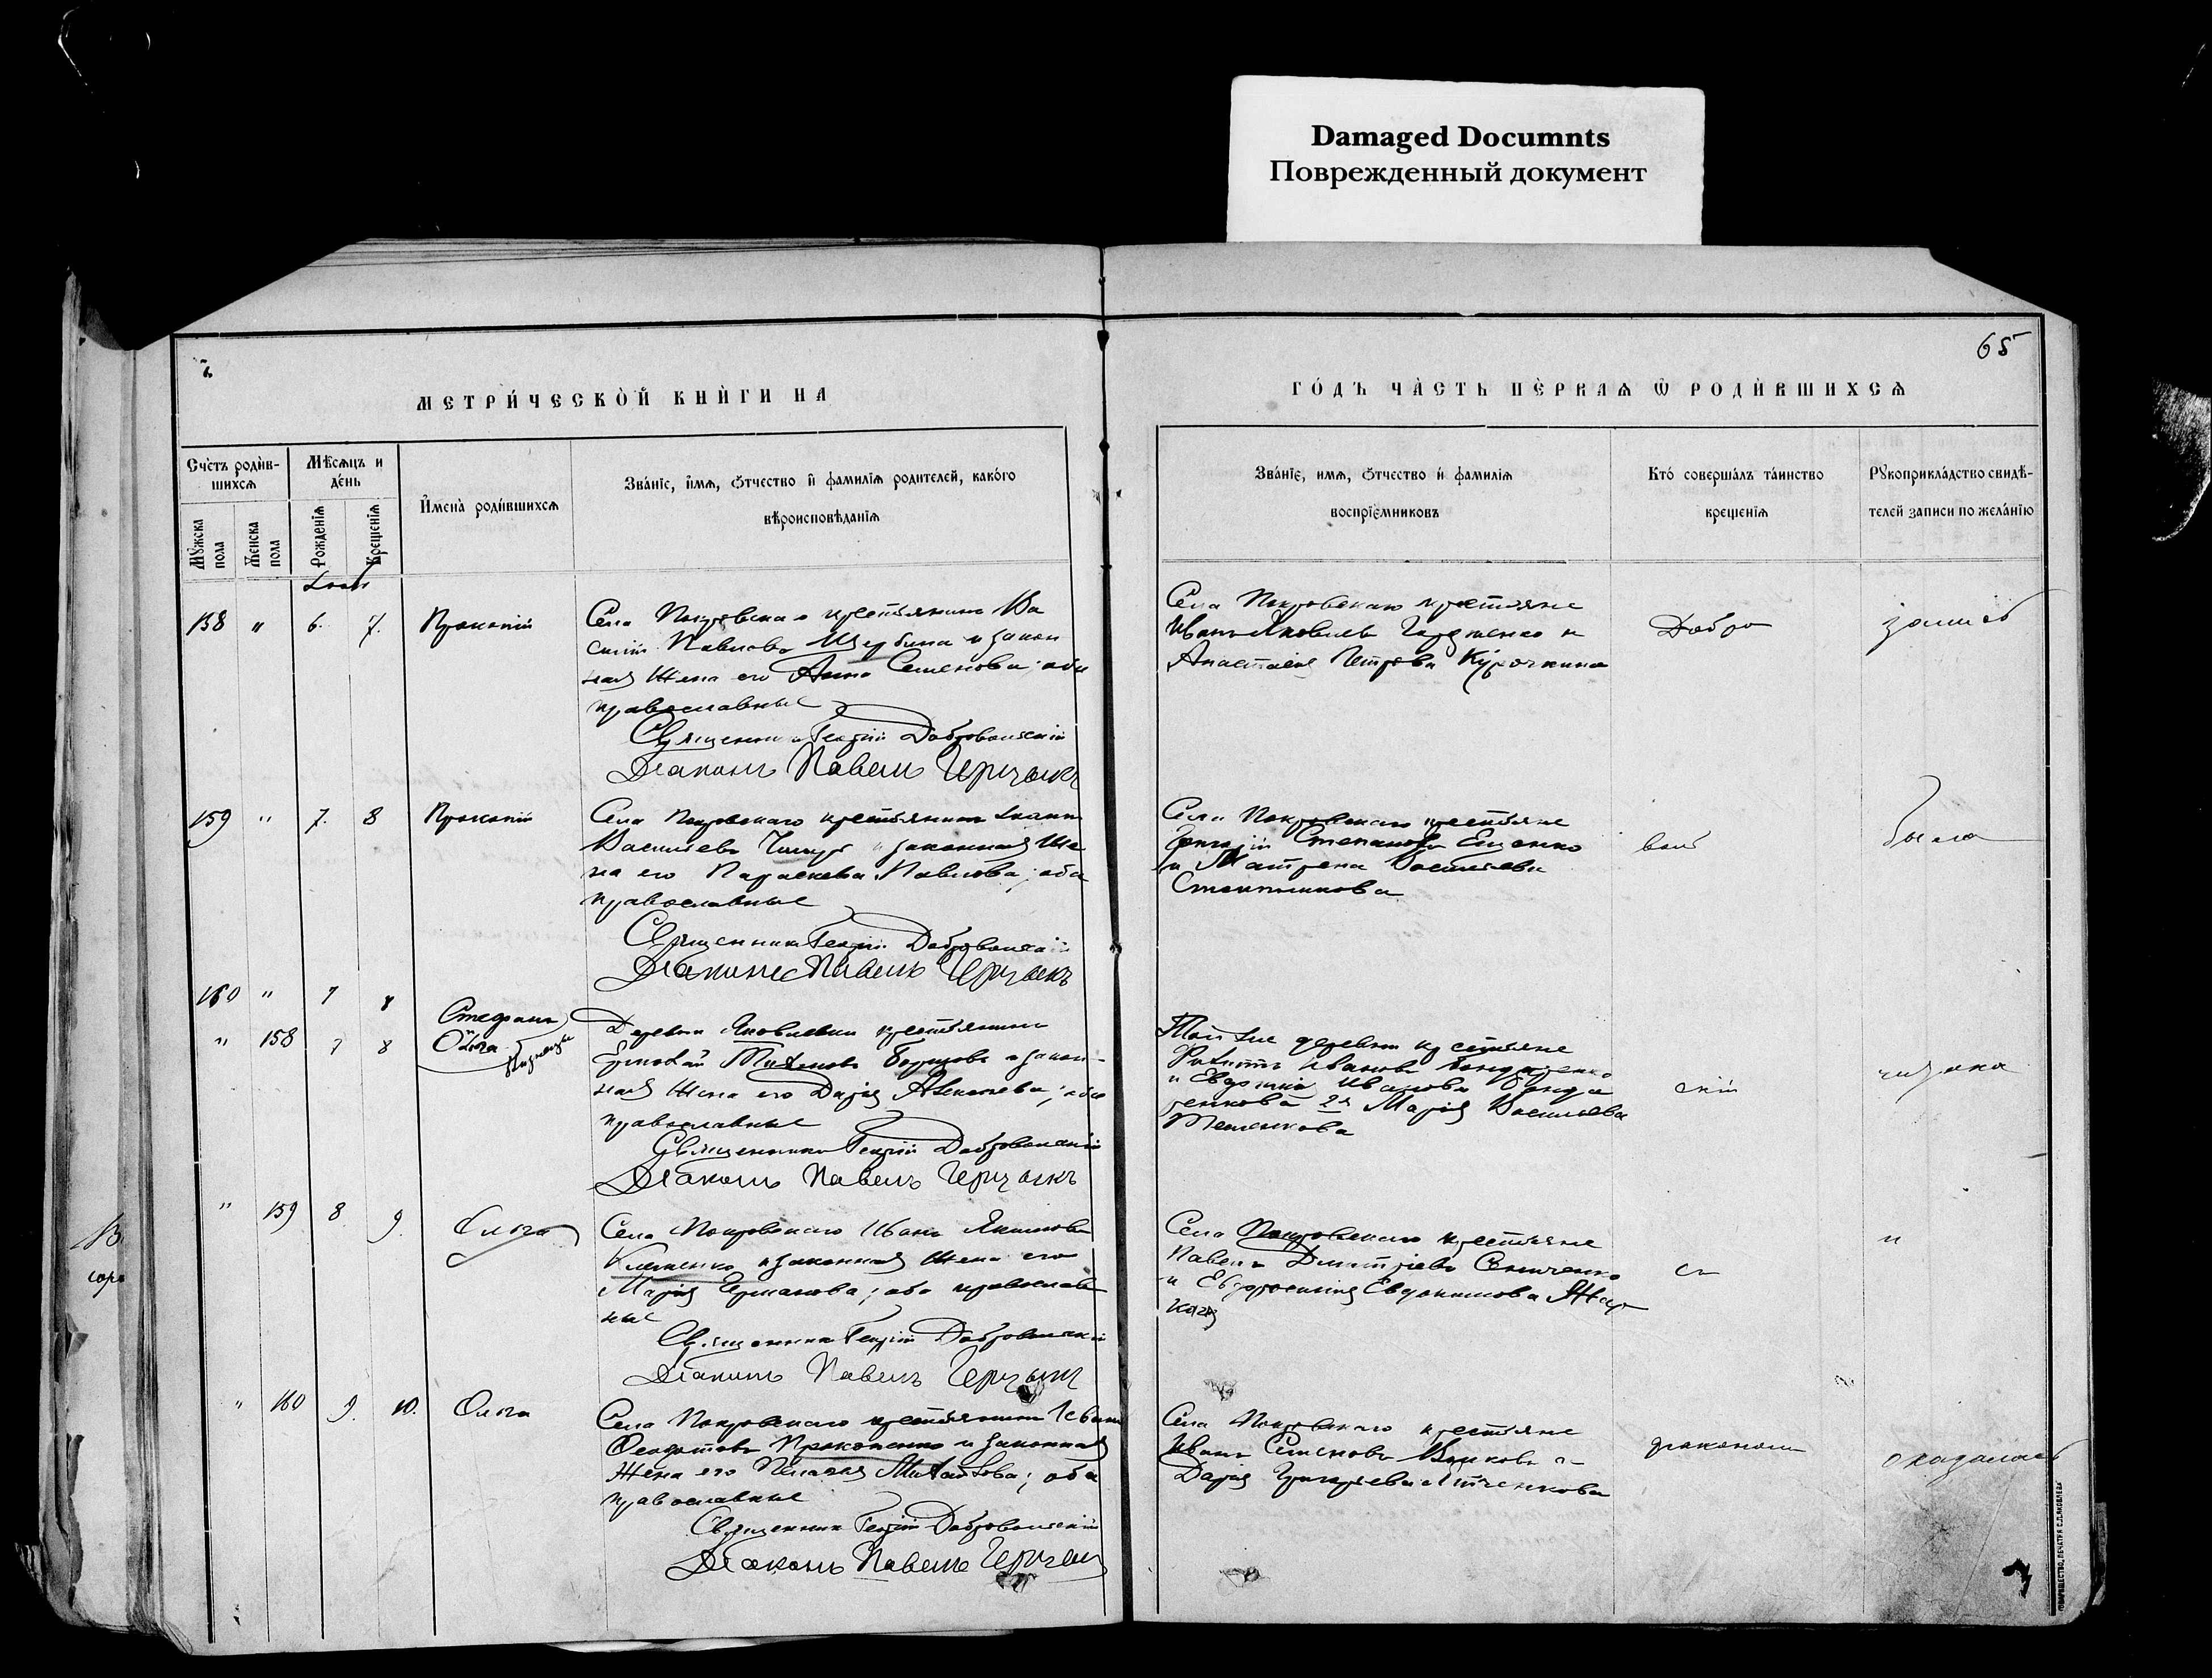 Damaged Documnts
Поврежденный документ
65
МЕТРИ́ЧЕСКОЙ КНИ́ГИ НА
ГО́ДЪ ЧА́СТЬ ПЕ́РВАѦ Ѡ РОДИ́ВШИХСѦ
Сче́тъ роди́в-
шихсѧ
Мѣ́сѧцъ и
де́нь
Мꙋ́жска
пола
Же́нска
пола
Рожде́нїѧ
Креще́нїѧ
Имена̀ роди́вшихсѧ
Зва́нїе, и́мѧ, ѻ́тчество и фами́лїѧ роди́телей, како́го
вѣроисповѣ́данїѧ
Зва́нїе, имѧ, ѻ́тчество и́ фамилїѧ
воспрїе́мниковъ
Кто́ соверша́лъ та́инство
креще́нїѧ
Рꙋкоприкла́дство свидѣ́-
телей записи по жела́нїю
158 " 6. 7. Прокопій
Села Покровскаго крестьянинъ Ва
силій Павловъ Щербина и закон
ная жена его Анна Семенова; оба
православные
Священникъ Георгій Добровольскій
Діаконъ Павелъ
Села Покровскаго крестьяне
Иванъ Яковлевъ и
Анастасія Петрова Курочкина
Добро
запись
159 " 7. 8 Прокопій
Села Покровскаго крестьянинъ Іоаннъ
Васильевъ и законная же
на его Параскева Павлова; оба
православные
Священникъ Георгій Добровольскій
Діаконъ Павелъ
Села Покровскаго крестьяне
Григорій Степановъ Ещенко
и Матрена Васильева
воль
была
160 " 7 8 Стефанъ
" 158 7 8 Ольга близнецы
Деревни Яковлевки крестьянинъ
и закон-
ная жена его Дарія ; оба
православные
Священникъ Георгій Добровольскій
Діаконъ Павелъ
Той же деревни крестьяне
Ивановъ Бондаренко
и Евдокія Иванова Бонда
ренкова 2я Марія Васильева
скій
" 159 8 9. Ольга
Села Покровскаго Иванъ Якимовъ
Клименко и законная жена его
Марія Ермакова; оба православ
ные
Священникъ Георгій Добровольскій
Діаконъ Павелъ
Села Покровскаго крестьяне
Павелъ Димитріевъ
и Евфросинія Евдокимова
съ
и
" 160 9. 10. Ольга
Села Покровскаго крестьянинъ
Феодотовъ Прокопенко и законная
жена его Пелагія Михайлова; оба
православные
Священникъ Георгій Добровольскій
Діаконъ Павелъ
Села Покровскаго крестьяне
Иванъ Семеновъ Волковъ и
Дарія Григорьева
діакономъ
оказалась